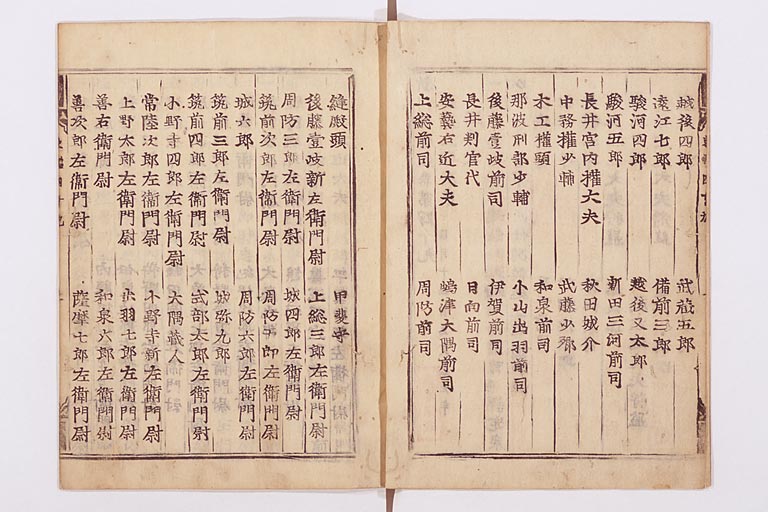 越後四郎 武蔵五郎
遠江七郎 備前三郎
駿河四郎 越後又太郎
駿河五郎 新田三河前司
長井宮内權大夫 秋田城介
中務權少輔 武藤少卿
木工權頭 和泉前司
那波刑部少輔 小山出羽前司
後藤壹岐前司 伊賀前司
長井判官代 日向前司
安藝右近大夫 嶋津大隅前司
上総前司 周防前司
縫殿頭 甲斐守
後藤壹岐新左衛門尉 上総三郎左衛門尉
周防三郎左衛門尉 城四郎左衛門尉
筑前次郎左衛門尉 周防 郎左衛門尉
城六郎 周防六郎左衛門尉
筑前三郎左衛門尉 城弥九郎
筑前四郎左衛門尉 式部太郎左衛門尉
小野寺四郎左衛門尉 大隅蔵人
常陸次郎左衛門尉 小野寺新左衛門尉
上野太郎左衛門尉 出羽七郎左衛門尉
善右衛門尉 和泉六郎左衛門尉
善次郎左衛門尉 薩摩七郎左衛門尉